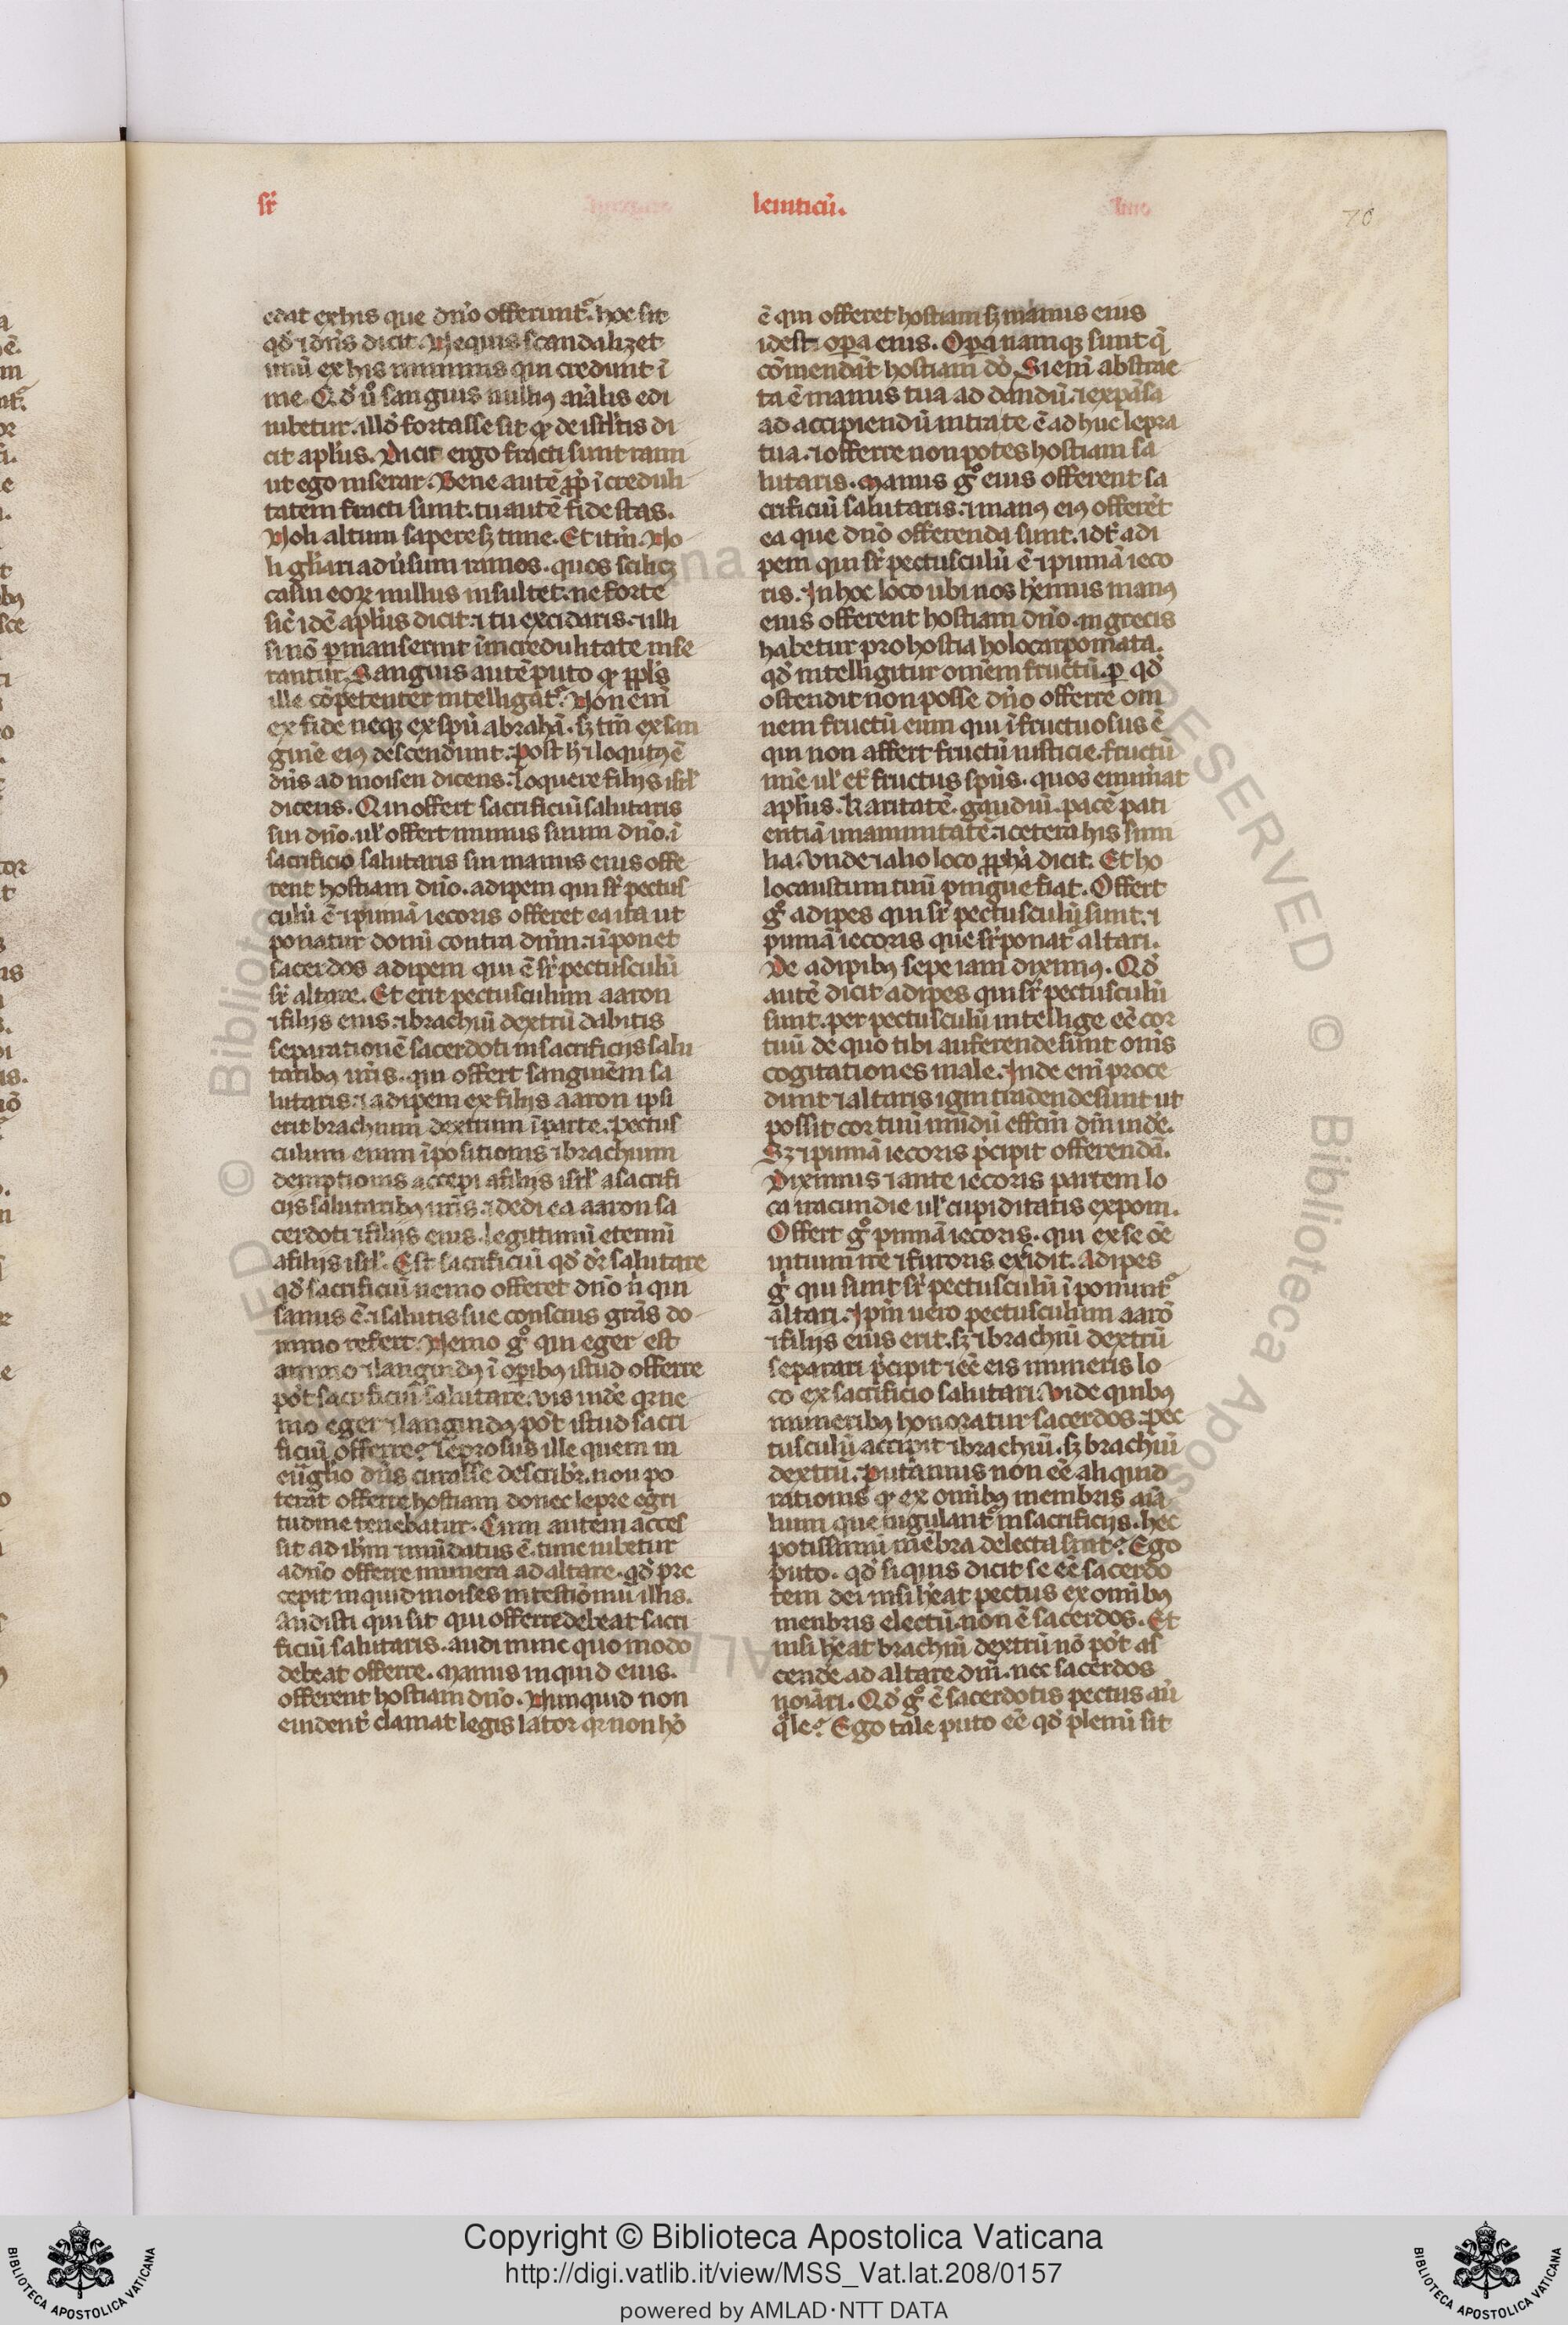 sr̄
leuiticū.
76
edat ex his que dn̄o offerunt᷑. hoc sit
qd̓ ⁊ dn̄s dicit. Ne quis scandalizet
unū ex his minimis qui credunt ī
me. Qd̓ ů sanguis nullꝰ aı̄alis edi
iubetur. illd̓ fortasse sit qͥ de isrl̓itis di
cit apl̓us. Dicit ergo fracti sunt rami
ut ego inserar. Bene autē ꝓp̄ īcreduli
tatem fracti sunt. tu autē fide stas.
Noli altum sapere sꝫ time. Et itm̄. No
li gl̓iari adūsum ramos. quos scilicꝫ
casui eoꝝ nullus insultet. ne forte
sic̄ idē apl̓us dicit. ⁊ tu excidaris. ⁊ illi
si nō ꝑmanserint īincredulitate inse
rantur. Sanguis autē puto qͥ ppl̓s
ille cōpetenter intelligat᷑. Non eni̅
ex fide neqꝫ ex spū abrahā. sꝫ tm̄ ex san
guinē eiꝰ descendunt. Post h̓ ⁊ loquitꝰ ē
dn̄s ad moisen dicens. Loquere filijs isrl̓
dicens. Qui offert sacrificiū salutaris
sui dn̄o. ul̓ offert munus suum dn̄o. ī
sacrificio salutaris sui manus eius offe
rent hostiam dn̄o. adipem qui sr̄ pectus
culū ē ⁊ pinnā iecoris offeret ea ita ut
ponatur domū contra dn̄m. ⁊ īponet
sacerdos adipem qui ē sr̄ pectusculū
sr̄ altare. Et erit pectusculum aaron
⁊ filijs eius. ⁊ brachiū dextrū dabitis
separationē sacerdoti in sacrificijs salu
taribꝰ ur̄is. qui offert sanguinem sa
lutaris. ⁊ adipem ex filijs aaron ipsi
erit brachium dextrum ī parte. Pectus
culum enim īpositionis ⁊ brachium
demptionis accepi a filijs isrl̓ a sacrifi
cijs salutaribꝰ ur̄is. ⁊ dedi ea aaron sa
cerdoti ⁊ filijs eius. legittimū eternū
a filijs isrl̓. Est sacrificiū qd̓ dr̄ salutare
qd̓ sacrificiū nemo offeret dn̄o n̓ qui
sanus ē. ⁊ salutis sue conscius grās do
mino refert. Nemo gͦ qui eger est
animo ⁊ languidꝰ ī oꝑibus istud offerre
pōt sacrificiū salutare. vis inde qr ne
mo eger ⁊ languidꝰ pōt istud sacri
ficiū offerre? leprosus ille quem in
eug̓lio dn̄s curasse describr̄. non po
terat offerre hostiam donec lepre egri
tudine tenebatur. Cum autem acces
sit ad ih̄m ⁊ mūdatus ē. tunc iubetur
a dn̄o offerre munera ad altare. qd̓ pre
cepit inquid moises in testiōmū illis.
Audisti qui sit qui offerre debeat sacri
ficiū salutaris. audi nunc quo modo
debeat offerre. Manus inquid eius.
offerent hostiam dn̄o. Nunquid non
euident̓ clamat legis lator qr non hō
ē qui offeret hostiam sꝫ manus eius
id est oꝑa eius. Oꝑa namqꝫ sunt q̄
cōmendāt hostiam dō. Si eni̅ abstrac
ta ē manus tua ad dandū. ⁊ expāsa
ad accipiendū intra te ē ad huc lepra
tua. ⁊ offerre non potes hostiam sa
lutaris. Manus gͦ eius offerent sa
crificiū salutaris. ⁊ manꝰ eiꝰ offerēt
ea que dn̄o offerenda sunt. idē adi
pem qui sr̄ pectusculū ē ⁊ pinnā ieco
ris. In hoc loco ubi nos h̓emus manꝰ
eius offerent hostiam dn̄o. in grecis
habetur pro hostia holocarpomata.
qd̓ intelligitur omēm fructū. ꝑ qd̓
ostendit non posse dn̄o offerre om
nem fructū eum qui īfructuosus ē
qui non affert fructū iusticie. fructū
mīe ul̓ et̄ fructus spūs. quos enumat
apl̓us. Karitatē. gaudiū. pacē pati
entiā unanimitatē. ⁊ cetera his simi
lia. Unde ⁊ alio loco ꝓpha dicit. Et ho
locaustum tuū pingue fiat. Offert
gͦ adipes qui sr̄ pectusculū sunt. ⁊
pinnā iecoris que sr̄ponat᷑ altari.
De adipibꝰ sepe iam diximꝰ. Qd̓
autē dicit adipes qui sr̄ pectusculū
sunt. per pectusculū intellige eē cor
tuū de quo tibi auferende sunt om̄s
cogitationes male. Inde eni̅ proce
dunt ⁊ altaris igni tradende sunt ut
possit cor tuū mūdū effctm̄ dm̄ uide̓.
Sꝫ ⁊ pinnā iecoris p̓cipit offerendā.
Diximus ⁊ ante iecoris partem lo
ca iracundie ul̓ cupiditatis exponi.
Offert gͦ pinnā iecoris. qui ex se oē
uitium ire ⁊ furoris excidit. Adipes
g̓ qui sunt sr̄ pectusculū īponunt᷑
altari. Ipm̄ uero pectusculum aarō
⁊ filijs eius erit. sꝫ ⁊ brachiū dextrū
separari p̓cipit ⁊ eē eis muneris lo
co ex sacrificio salutari. Vide quibꝰ
muneribꝰ honoratur sacerdos. pec
tusculū accipit ⁊ brachiū. sꝫ brachiū
dextrū. Putamus non eē aliquid
rationis qͥ ex omībꝰ membris aı̄a
lium que iugulant᷑ in sacrificijs. hec
potissimū mēbra delecta sint? Ego
puto. qd̓ si quis dicit se eē sacerdo
tem dei nisi h̓eat pectus ex omībꝰ
menbris electū. non ē sacerdos. Et
nisi h̓eat brachiū dextrū nō pōt as
cende̓ ad altare dn̄i. nec sacerdos
noīari. Qd̓ gͦ ē sacerdotis pectus aū
qͣle? Ego tale puto eē qd̓ plenū sit
Copyright © Biblioteca Apostolica Vaticana
http://digi.vatlib.it/view/MSS_Vat.lat.208/0157
powered by AMLAD·NTT DATA
BIBLIOTECA APOSTOLICA VATICANA
BIBLIOTECA APOSTOLICA VATICANA